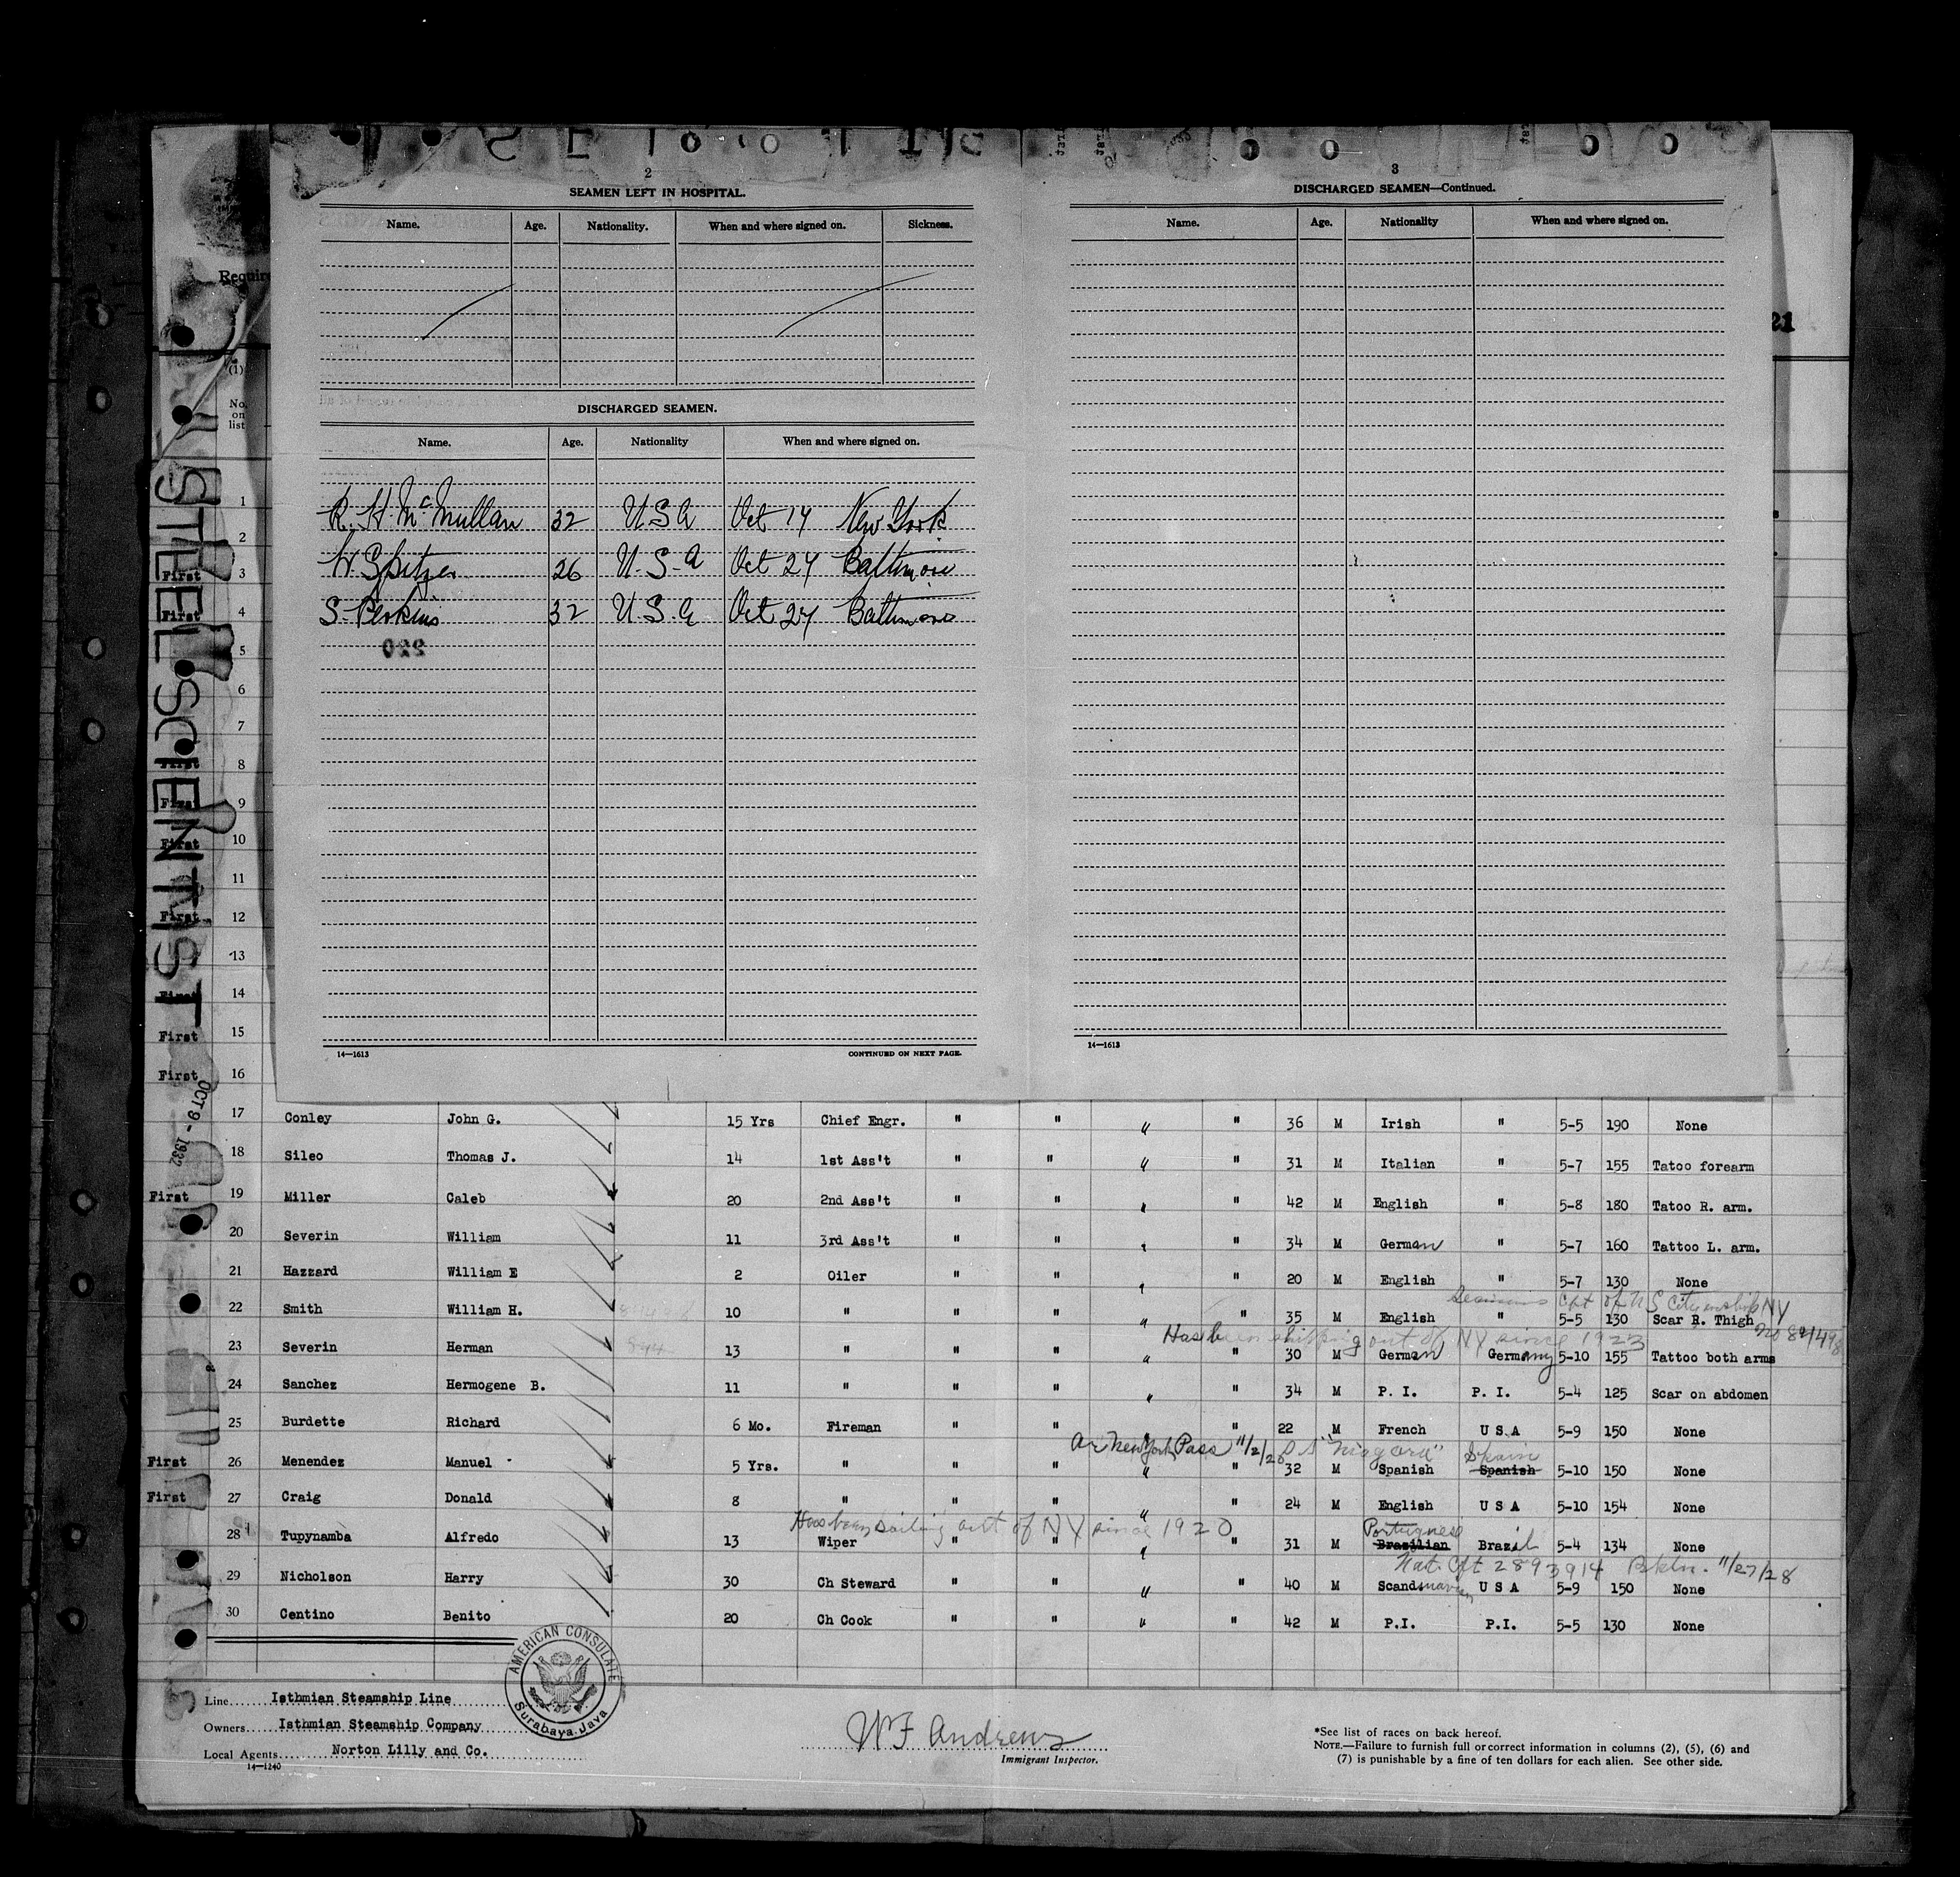 2
SEAMEN LEFT IN HOSPITAL.
Name. Age. Nationality. When and where signed on. Sickness.
DISCHARGED SEAMEN.
Name. Age. Nationality When and where signed on.
R. H. McMullan 32 U S A Oct 14 New York
W Spitzer 26 U. S. A Oct 24 Baltimore
S. Perkins 32 U. S. A Oct 24 Baltimore
220
14—1613 CONTINUED ON NEXT PAGE.
3
DISCHARGED SEAMEN—Continued.
Name. Age. Nationality When and where signed on.
14—1613
21
Require
(1)
No. on list
STEEL SCIENTIST
OCT 9 - 1932
1
2
First 3
First 4
5
6
7
First 8
First 9
First 10
11
First 12
13
First 14
First 15
First 16
17 Conley John G. 15 Yrs Chief Engr. " " " " 36 M Irish " 5-5 190 None
18 Sileo Thomas J. 14 1st Ass't " " " " 31 M Italian " 5-7 155 Tatoo forearm
First 19 Miller Caleb 20 2nd Ass't " " " " 42 M English " 5-8 180 Tatoo R. arm.
20 Severin William 11 3rd Ass't " " " " 34 M German " 5-7 160 Tattoo L. arm.
21 Hazzard William E 2 Oiler " " " " 20 M English " 5-7 130 None
Seamans Cft of U S Citizenship NY
22 Smith William H. 10 " " " " " 35 M English " 5-5 130 Scar R. Thigh
Has been shipping out of NY since 1923
23 Severin Herman 13 " " " " " 30 M German Germany 5-10 155 Tattoo both arms
24 Sanchez Hermogene B. 11 " " " " " 34 M P. I. P. I. 5-4 125 Scar on abdomen
25 Burdette Richard 6 Mo. Fireman " " " " 22 M French U S A 5-9 150 None
Ar New York Pass 11/2/28 S S "Niagara" Spain
First 26 Menendez Manuel 5 Yrs. " " " " " 32 M Spanish Spanish 5-10 150 None
First 27 Craig Donald 8 " " " " " 24 M English U S A 5-10 154 None
Has been sailing out of NY since 1920 Portuguese
28 Tupynamba Alfredo 13 Wiper " " " " 31 M Brazilian Brazil 5-4 134 None
Nat. Cft 2893914 Bkln. 11/27/28
29 Nicholson Harry 30 Ch Steward " " " " 40 M Scandinavian U S A 5-9 150 None
30 Centino Benito 20 Ch Cook " " " " 42 M P.I. P.I. 5-5 130 None
AMERICAN CONSULATE
Surabaya, Java
Line Isthmian Steamship Line
Owners Isthmian Steamship Company
Local Agents Norton Lilly and Co.
14—1240
W F Andrews
Immigrant Inspector.
*See list of races on back hereof.
NOTE.—Failure to furnish full or correct information in columns (2), (5), (6) and
(7) is punishable by a fine of ten dollars for each alien. See other side.